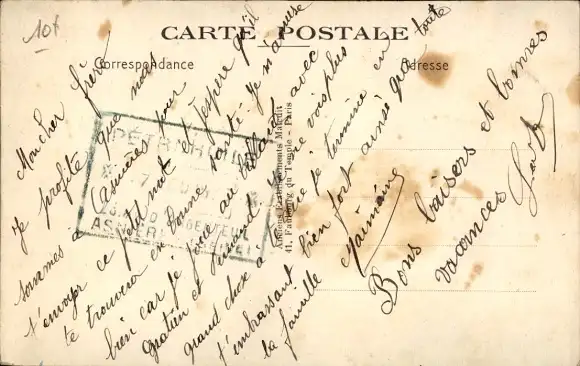 10f
CARTE POSTALE
Correspondance
Adresse
Mon cher frère
Je profite que nous
sommes à Asnières pour
t'envoyer ce petit mot et j'espère qu'il
te trouvera en bonne santé. Je m'amuse
bien car je joue au avec
Gratien et ne vois plus
grand chose à que je termine en
t'embrassant bien fort ainsi que toute
la famille
Bons baisers et bonnes
vacances
PÉTR
Anciens Etablissements Malcuit
41, Faubourg du Temple - Paris